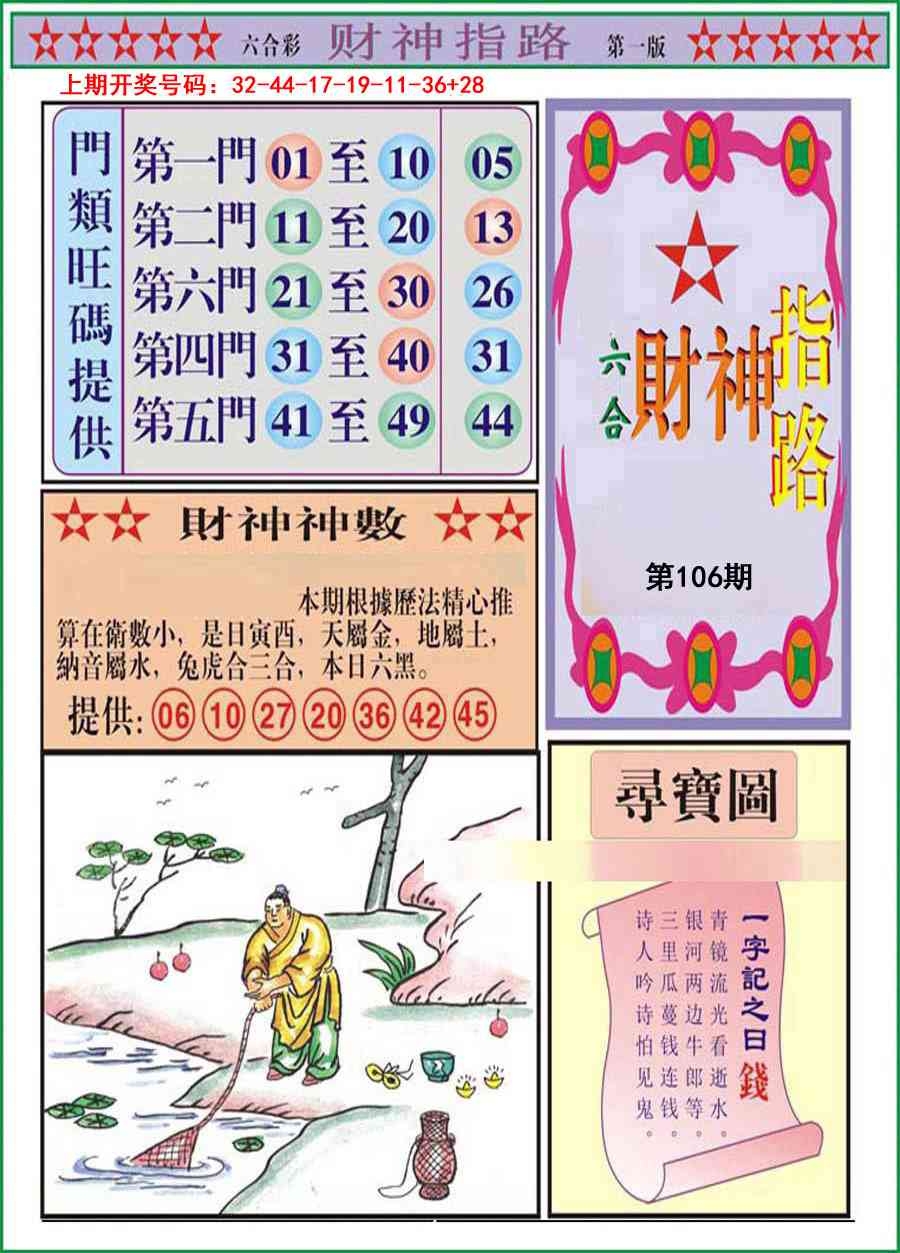 六合彩 财神指路 第一版
上期开奖号码：32-44-17-19-11-36+28
門類旺碼提供
第一門 01 至 10 05
第二門 11 至 20 13
第六門 21 至 30 26
第四門 31 至 40 31
第五門 41 至 49 44
六合
財神
指路
第106期
財神神數
本期根據歷法精心推
算在衛數小，是日寅酉，天屬金，地屬土，
納音屬水，兔虎合三合，本日六黑。
提供: 06 10 27 20 36 42 45
尋寶圖
一字記之曰 錢
青镜流光看逝水。
银河两边牛郎等。
三里瓜蔓钱连钱。
诗人吟诗怕见鬼。